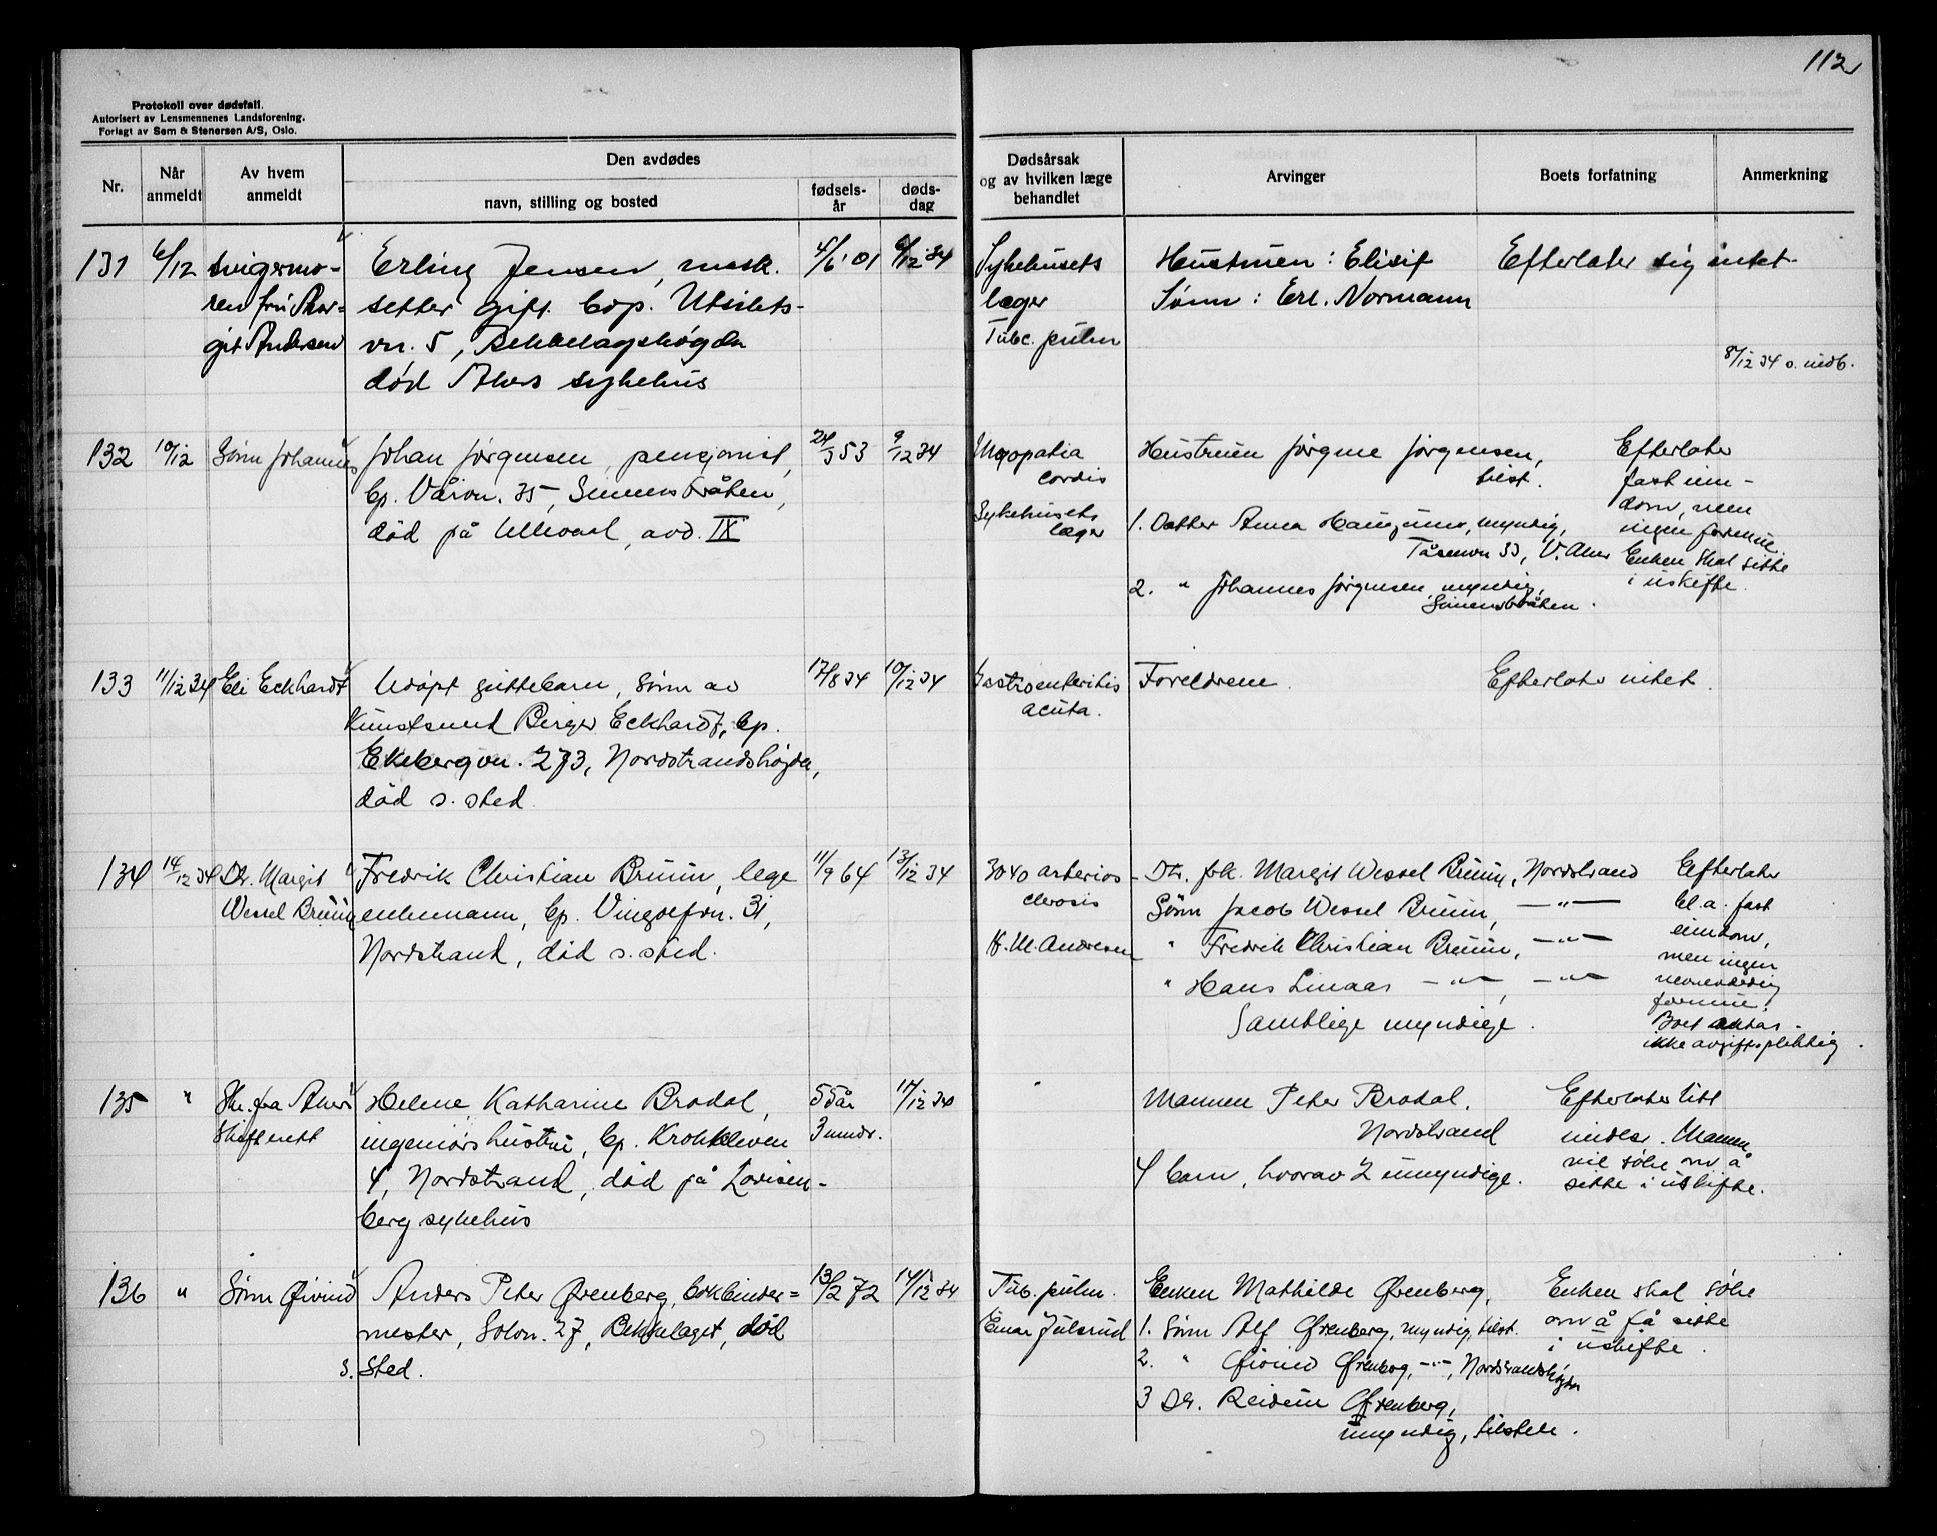 112
Protokoll over dødsfall.
Autorisert av Lensmennenes Landsforening.
Forlagt av Sem & Stenersen A/S, Oslo.
Nr.
Når anmeldt
Av hvem anmeldt
Den avdødes
navn, stilling og bosted
fødsels-år
døds-dag
Dødsårsak og av hvilken læge behandlet
Arvinger
Boets forfatning
Anmerkning
131 6/12 svigermo- Erling Jensen, mask. 4/6 01 6/12 34 Sykehusets Hustruen: Elisif Efterlater sig intet
ren fru Mar- setter gift. bop. Utsikts- læger Sønn: Erl. Normann
git Andersen vn. 5, Bekkelagshøgda Tubc. pulm
8/12 34 o. indb.
død Akers sykehus
132 10/12 Sønn Johannes Johan Jørgensen, pensjonist, 24/3 53 9/12 34 Myopatia Hustruen Jørgine Jørgensen, Efterlater
bp. Vårvn. 35, Simensbråten, cordis tilst. fast eien-
død på Ullevaal, avd. IX Sykehusets 1. Datter Anna Haugunn, myndig, dom, men
læger Tåsenvn 33, V. Aker ingen formue.
Enken skal sitte
2. " Johannes Jørgensen, myndig, i uskifte.
Simensbråten.
133 11/12 34 Eli Eckhardt Udøpt guttebarn, sønn av 17/8 34 10/12 34 Gastroenteritis Foreldrene. Efterlater intet.
Kunstsmed Birger Eckhardt, bp. acuta.
Ekebergvn. 273, Nordstrandshøgda,
død s. sted.
134 14/12 34 Dtr. Margit Fredrik Christian Bruun, lege 11/9 64 13/12 34 3040 arterios- Dtr. frk. Margit Wessel Bruun, Nordstrand Efterlater
Wessel Bruun enkemann, bp. Vingolfvn. 31, clerosis Sønn Jacob Wessel Bruun, —"— bl.a. fast
Nordstrand, død s. sted. K. M. Andresen " Fredrik Christian Bruun, —"— eiendom,
men ingen
" Hans Linaae —"—, —"— nevneverdig
formue.
Samtlige myndige. Boet antas
ikke avgiftspliktig.
135 " Skr. fra Aker Helene Katharine Brodal, 55 år 11/12 34 " Mannen Peter Brodal. Efterlater litt
Skifterett ingeniørs hustru, bp. Krokkleven 3 mndr. Nordstrand indbo. Mannen
4, Nordstrand, død på Lovisen- 4 barn, hvorav 2 umyndige. vil søke om å
sitte i uskifte.
berg sykehus
136 " Sønn Øivind Anders Peter Ørenberg, bokbinder- 13/2 72 14/12 34 Tub. pulm. Enken Mathilde Ørenberg, Enken skal søke
mester, Solvn. 27, Bekkelaget, død Einar Julsrud 1. Sønn Alf Ørenberg, myndig, tilst. om å få sitte
s. sted. 2. " Øivind Ørenberg, —"—, Nordstrandshøgda i uskifte.
3 Dtr. Reidun Ørenberg,
umyndig, tilstede.